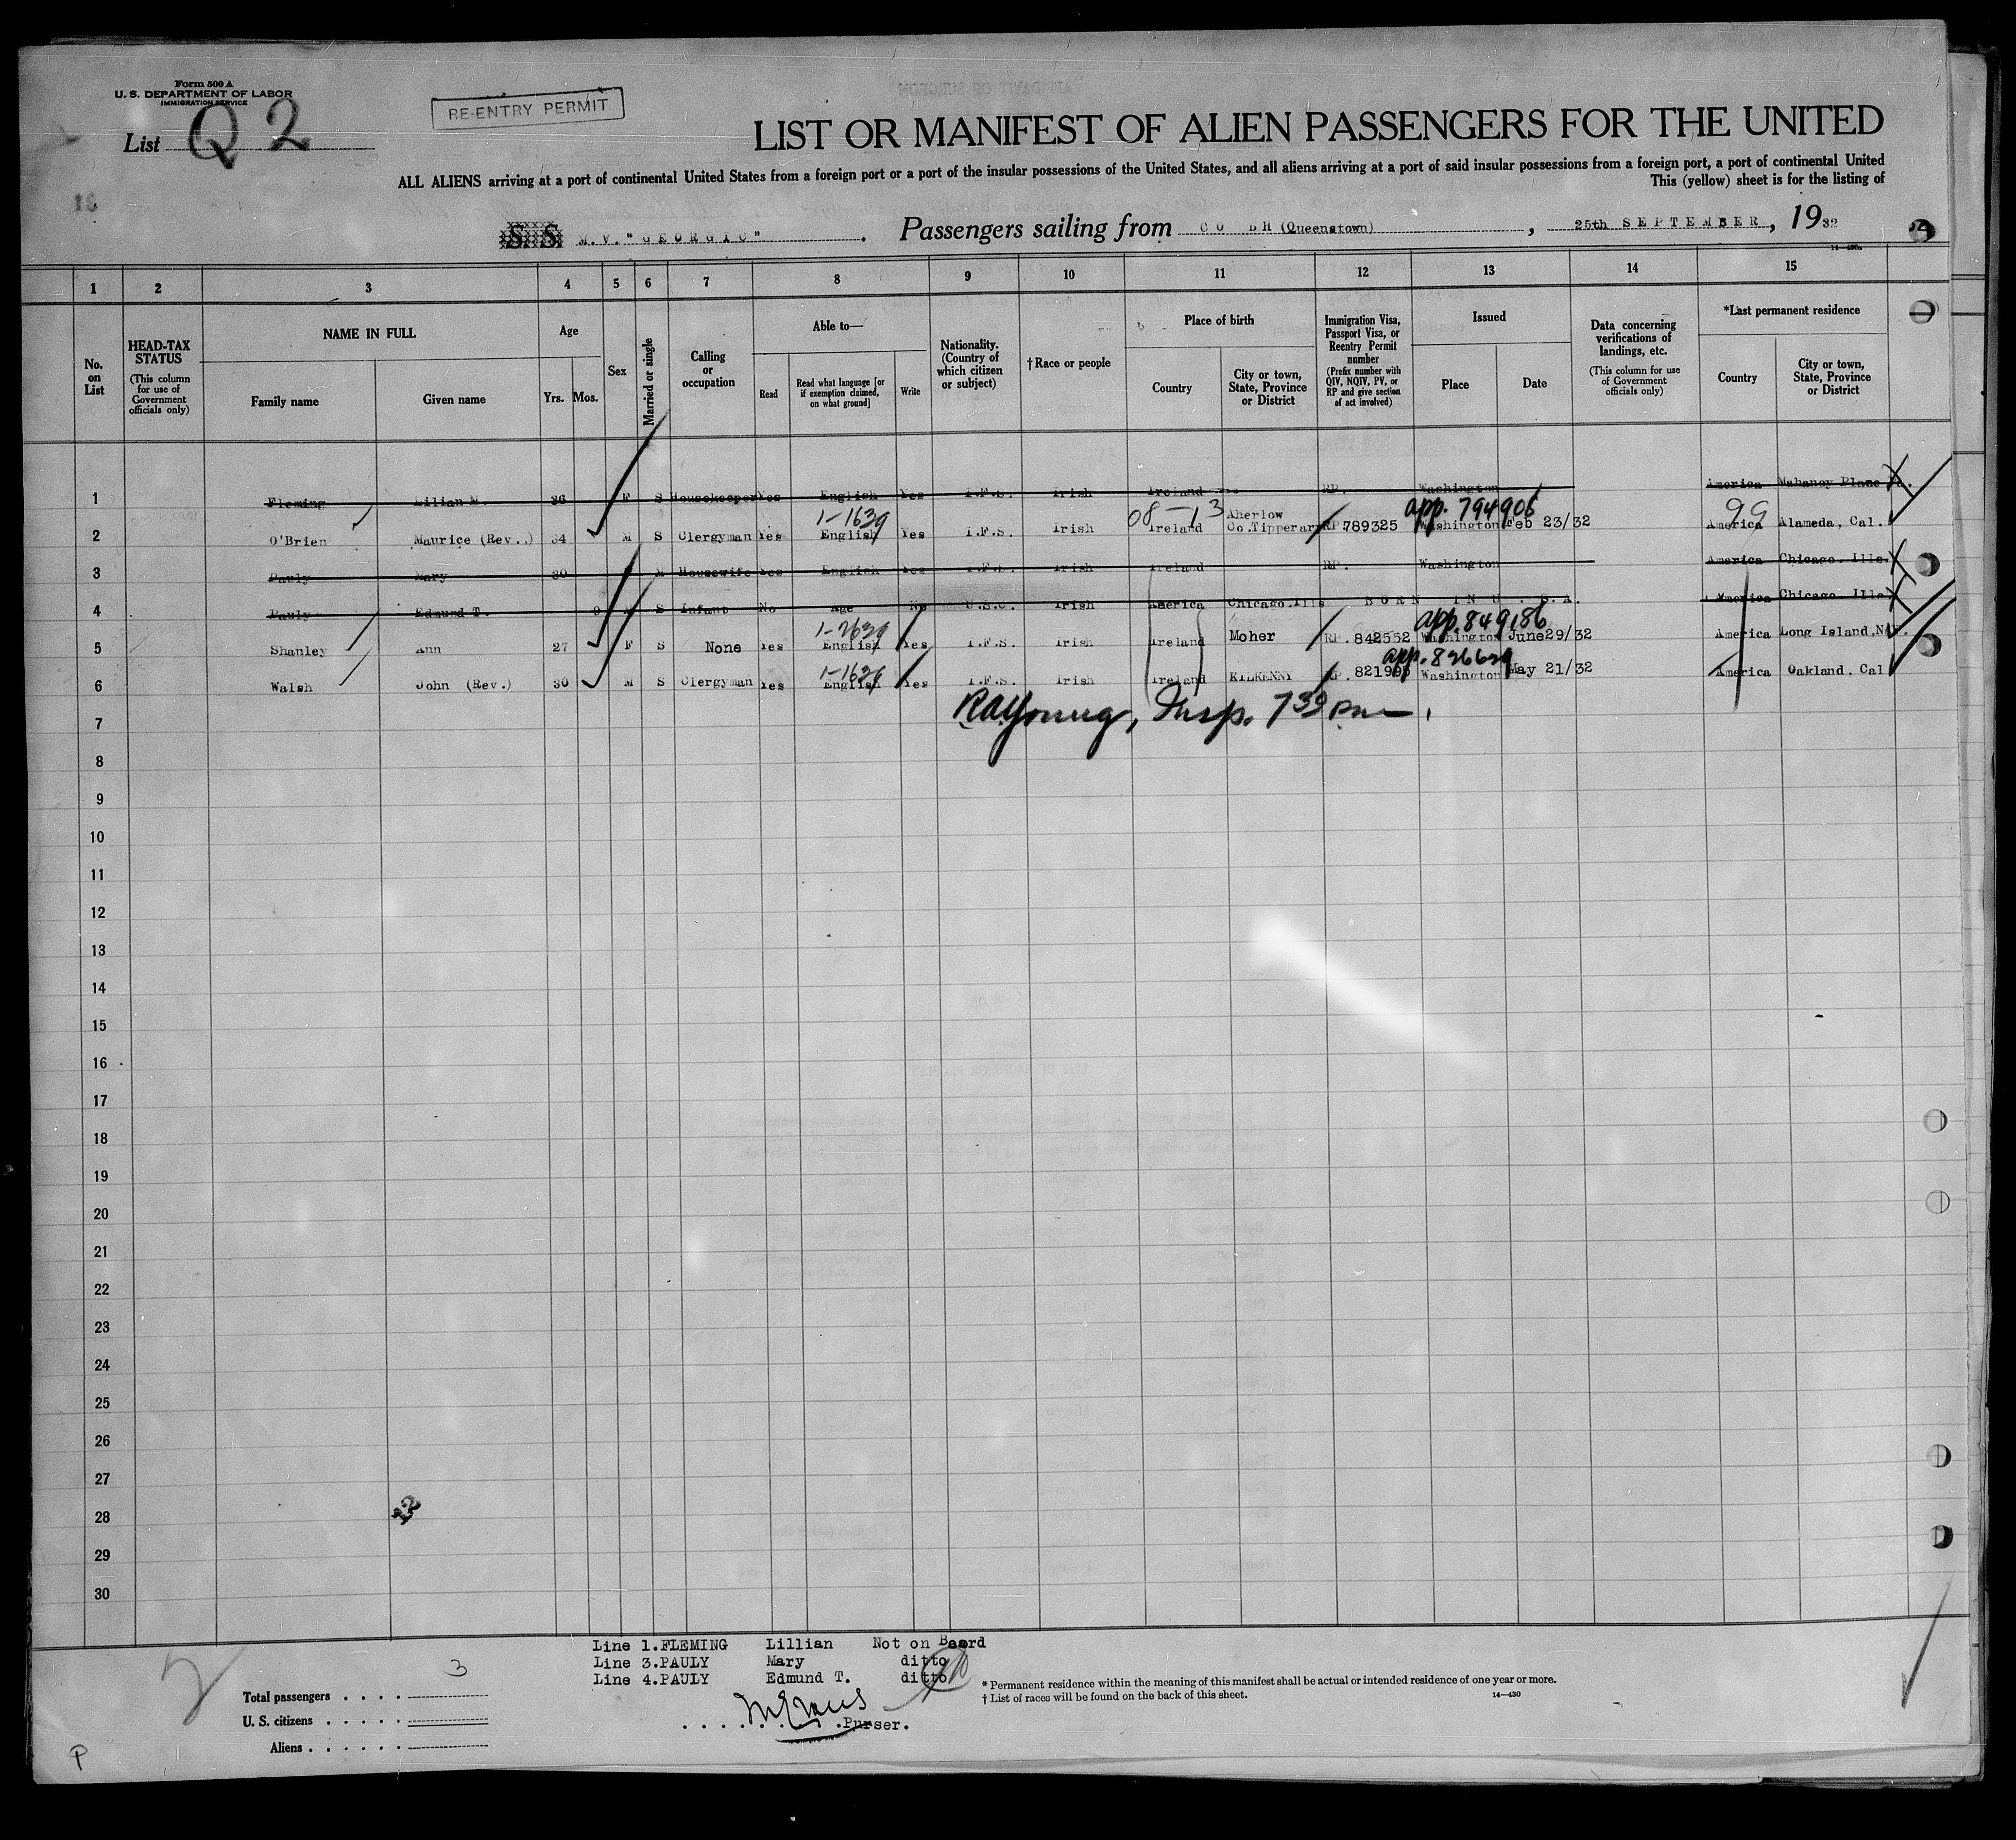 Form 500 A
U. S. DEPARTMENT OF LABOR
IMMIGRATION SERVICE
List Q 2
RE-ENTRY PERMIT
LIST OR MANIFEST OF ALIEN PASSENGERS FOR THE UNITED
ALL ALIENS arriving at a port of continental United States from a foreign port or a port of the insular possessions of the United States, and all aliens arriving at a port of said insular possessions from a foreign port, a port of continental United
This (yellow) sheet is for the listing of
S S M.V. "GEORGIC" . Passengers sailing from CO BH (Queenstown) , 25th SEPTEMBER , 19 32
1 2 3 4 5 6 7 8 9 10 11 12 13 14 15
No. on List
HEAD-TAX STATUS (This column for use of Government officials only)
NAME IN FULL
Family name Given name
Age
Yrs. Mos.
Sex
Married or single
Calling or occupation
Able to—
Read Read what language [or if exemption claimed, on what ground] Write
Nationality. (Country of which citizen or subject)
† Race or people
Place of birth
Country City or town, State, Province or District
Immigration Visa, Passport Visa, or Reentry Permit number (Prefix number with QIV, NQIV, PV, or RP and give section of act involved)
Issued
Place Date
Data concerning verifications of landings, etc. (This column for use of Government officials only)
*Last permanent residence
Country City or town, State, Province or District
1 Fleming Lilian M. 36 F S Housekeeper Yes English Yes I.F.S. Irish Ireland RP. Washington America Mahanoy Plane Pa.
1-1639 08-13 Aherlow app. 794906 99
2 O'Brien Maurice (Rev.) 34 M S Clergyman Yes English Yes I.F.S. Irish Ireland Co.Tipperary RP 789325 Washington Feb 23/32 America Alameda, Cal.
3 Pauly Mary 30 F M Housewife Yes English Yes I.F.S. Irish Ireland RP. Washington America Chicago. Ills.
4 Pauly Edmund T. 9 M S Infant No Age No U.S.C. Irish America Chicago.Ills BORN IN U.S.A. America Chicago. Ills.
1-2639 app. 849186
5 Shanley Ann 27 F S None Yes English Yes I.F.S. Irish Ireland Moher RP. 842552 Washington June 29/32 America Long Island,N.Y.
1-1639 app. 826629
6 Walsh John (Rev.) 30 M S Clergyman Yes English Yes I.F.S. Irish Ireland KILKENNY RP. 821995 Washington May 21/32 America Oakland, Cal
7 RAYoung, Insp. 7 30 pm
8
9
10
11
12
13
14
15
16
17
18
19
20
21
22
23
24
25
26
27
28
29
30
12
Line 1.FLEMING Lillian Not on Board
Line 3.PAULY Mary ditto
Line 4.PAULY Edmund T. ditto
Purser.
2
Total passengers . . . . 3
U. S. citizens . . . . .
Aliens . . . . . .
P
* Permanent residence within the meaning of this manifest shall be actual or intended residence of one year or more.
† List of races will be found on the back of this sheet.
14—430